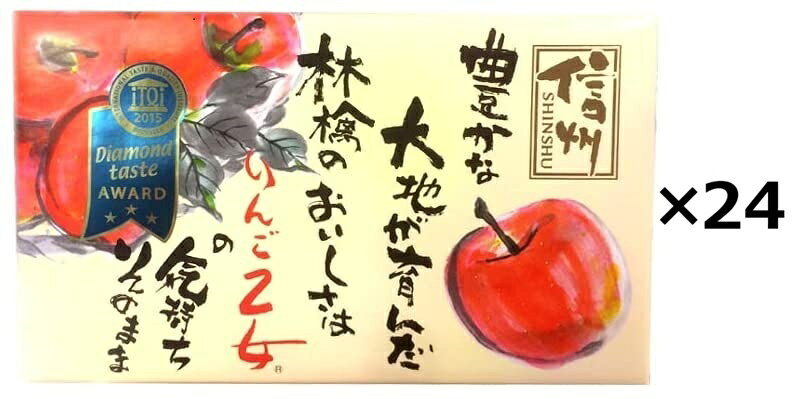 信州
SHINSHU
豊かな
大地が育んだ
林檎のおいしさは
りんご乙女®
の
気持ち
そのまま
iTQi
2015
Diamond
taste
AWARD
×24